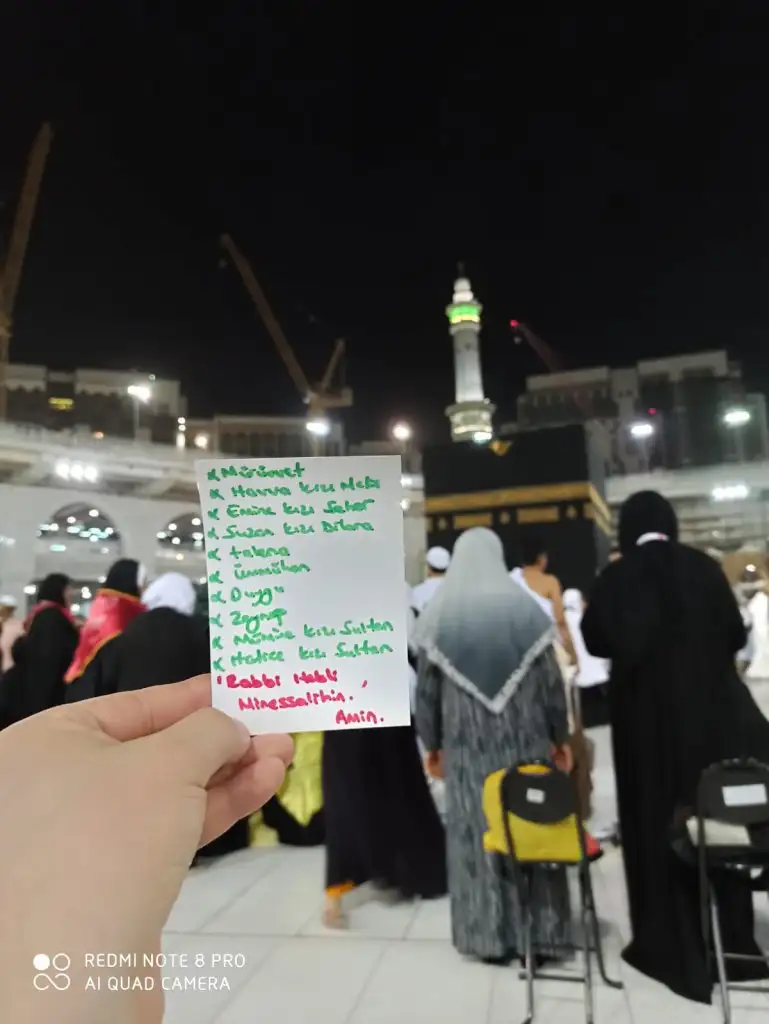 Mürüvvet
Havva kızı Nebi
Emine kızı Seher
Suzan kızı Dilara
Ümmühan
Duygu
Zeynep
Mümine kızı Sultan
Hatice kızı Sultan
"Rabbi Hebli
Minessalihin."
Amin.
REDMI NOTE 8 PRO
AI QUAD CAMERA